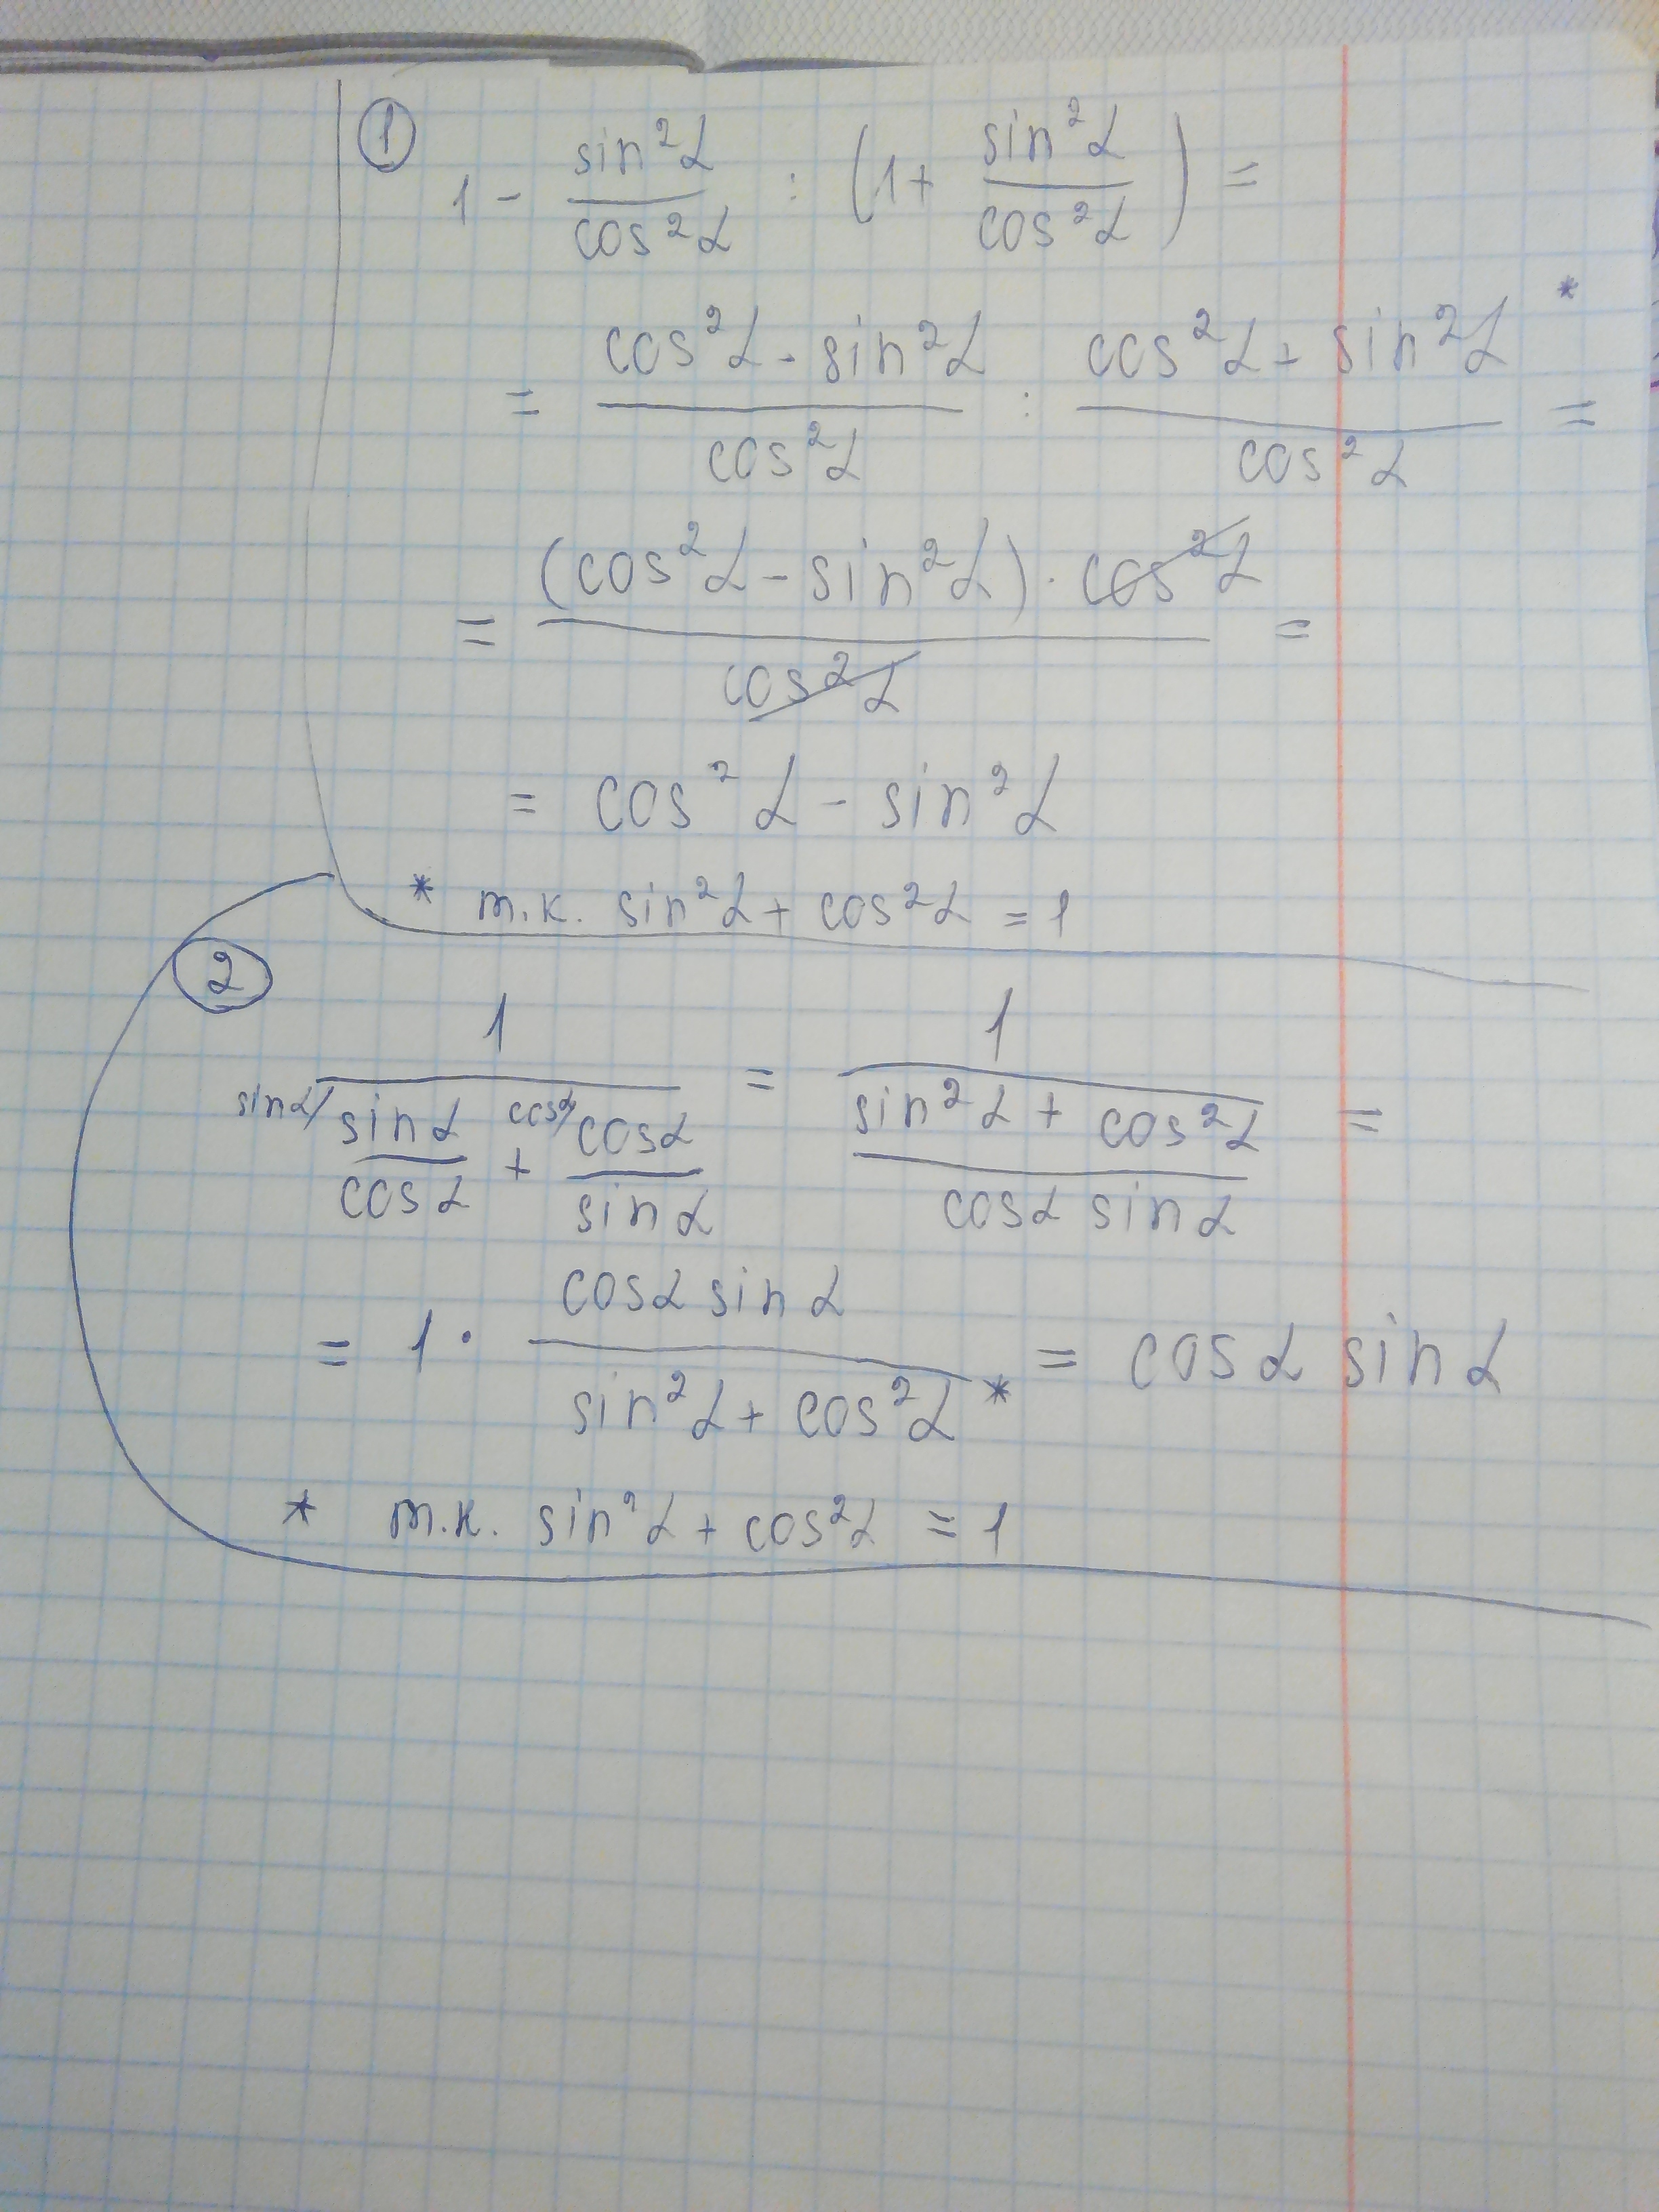 ①
1 - sin²α/cos²α : (1 + sin²α/cos²α) =
= (cos²α - sin²α)/cos²α : (cos²α + sin²α)*/cos²α =
= (cos²α - sin²α) · cos²α / cos²α =
= cos²α - sin²α
* т.к. sin²α + cos²α = 1
②
1 / (sinα/ sinα/cosα + cosα/ cosα/sinα) = 1 / ((sin²α + cos²α)/(cosα sinα)) =
= 1 · cosα sinα / (sin²α + cos²α)* = cosα sinα
* т.к. sin²α + cos²α = 1